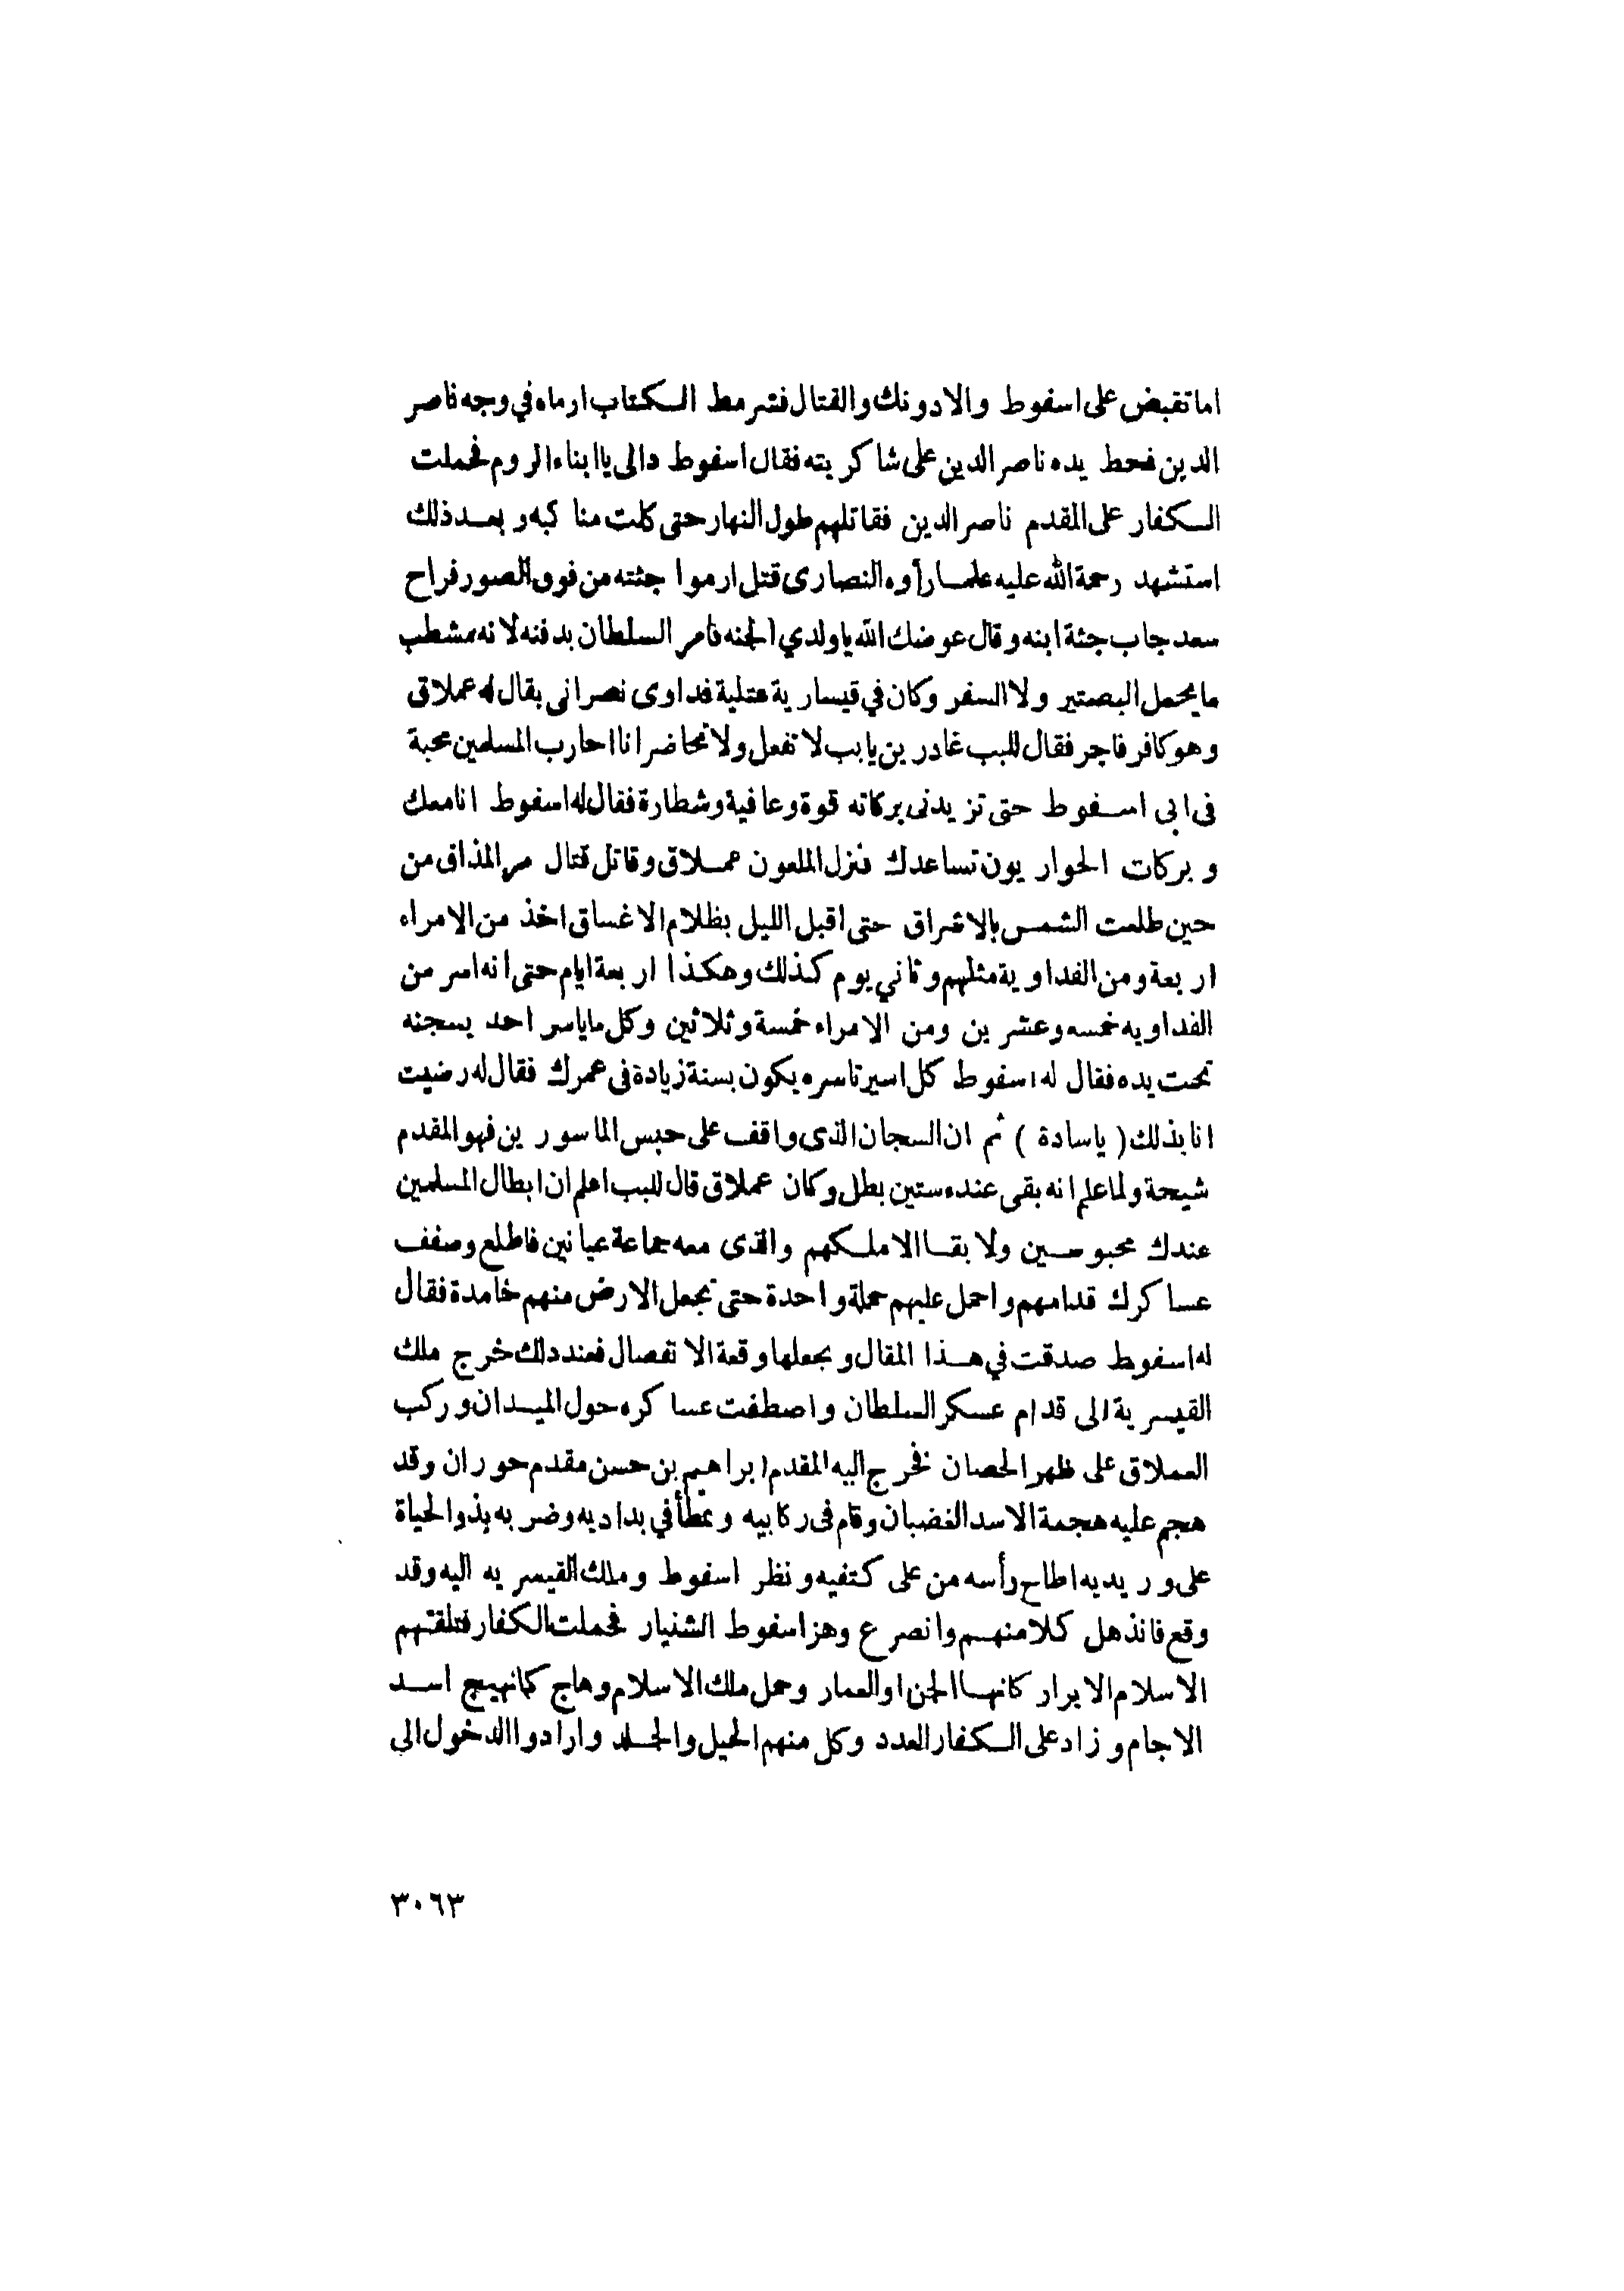 اما تقبض على اسفوط والا دونك والقتال فشرمط الكتاب ارماه في وجه ناصر
الدين فحط يده ناصر الدين على شاكريته فقال اسفوط دالى يا ابناء الروم فحملت
الكفار على المقدم ناصر الدين فقاتلهم طول النهار حتى كلت مناكبه و بعد ذلك
استشهد رحمة الله عليه علما رأوه النصارى قتل ارموا جثته من فوق الصور فراح
سعد جاب جثة ابنه وقال عوضك الله يا ولدي الجنه فامر السلطان بدفنه لانه مشطب
ما يحمل البصتير ولا السفر وكان في قيسارية عتلية فداوى نصرانى يقال له عملاق
وهو كافر فاجر فقال للبب غادرين يابب لا تفعل ولا تحاضر انا احارب المسلمين محبة
فى ابى اسفوط حتى تزيدنى بركاته قوة وعافية وشطارة فقال له اسفوط انا معك
و بركات الحواريون تساعدك فنزل الملعون عملاق وقاتل قتال مر المذاق من
حين طلعت الشمس بالاشراق حتى اقبل الليل بظلام الاغساق اخذ من الامراء
اربعة ومن الفداوية مثلهم وثاني يوم كذلك وهكذا اربعة ايام حتى انه اسر من
الفداويه خمسه وعشرين ومن الامراء خمسة وثلاثين وكل ما ياسر احد يسجنه
تحت يده فقال له اسفوط كل اسير تاسره يكون بسنة زيادة فى عمرك فقال له رضيت
انا بذلك ( ياسادة ) ثم ان السجان الذى واقف على حبس الماسورين فهو المقدم
شيحة ولما علم انه بقى عنده ستين بطل وكان عملاق قال للبب اعلم ان ابطال المسلمين
عندك محبوسين ولا بقا الا ملكهم والذى معه جماعة عيانين فاطلع وصفف
عساكرك قدامهم واحمل عليهم حملة واحدة حتى تجعل الارض منهم خامدة فقال
له اسفوط صدقت في هذا المقال و يجعلها وقعة الانفصال فعند ذلك خرج ملك
القيسرية الى قدام عسكر السلطان واصطفت عساكره حول الميدان وركب
العملاق على ظهر الحصان فخرج اليه المقدم ابراهيم بن حسن مقدم حوران وقد
هجم عليه هجمة الاسد الغضبان وقام فى ركابيه وتمطأ في بداديه وضربه بذو الحياة
على وريديه اطاح رأسه من على كتفيه ونظر اسفوط وملك القيسريه اليه وقد
وقع فانذهل كلا منهم وانصرع وهز اسفوط الشنيار فحملت الكفار فتلقتهم
الاسلام الابرار كانها الجن او العمار وحمل ملك الاسلام وهاج كما تهيج اسد
الاجام وزاد على الكفار العدد وكل منهم الحيل والجلد وارادوا الدخول الى
٣٠٦٣